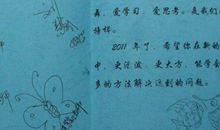 弄，爱学习、爱思考。是我们
榜样。
2011年了，希望你在新的
中，更活泼、更大方，能学会
多的方法解决遇到的问题。